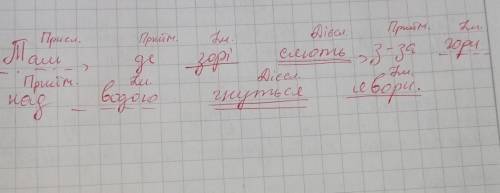 Присл. Прийм. Ім. Дієсл. Прийм. Ім.
Там, де зорі сяють, з-за гори
Прийм. Ім. Дієсл. Ім.
над водою гнуться явори.